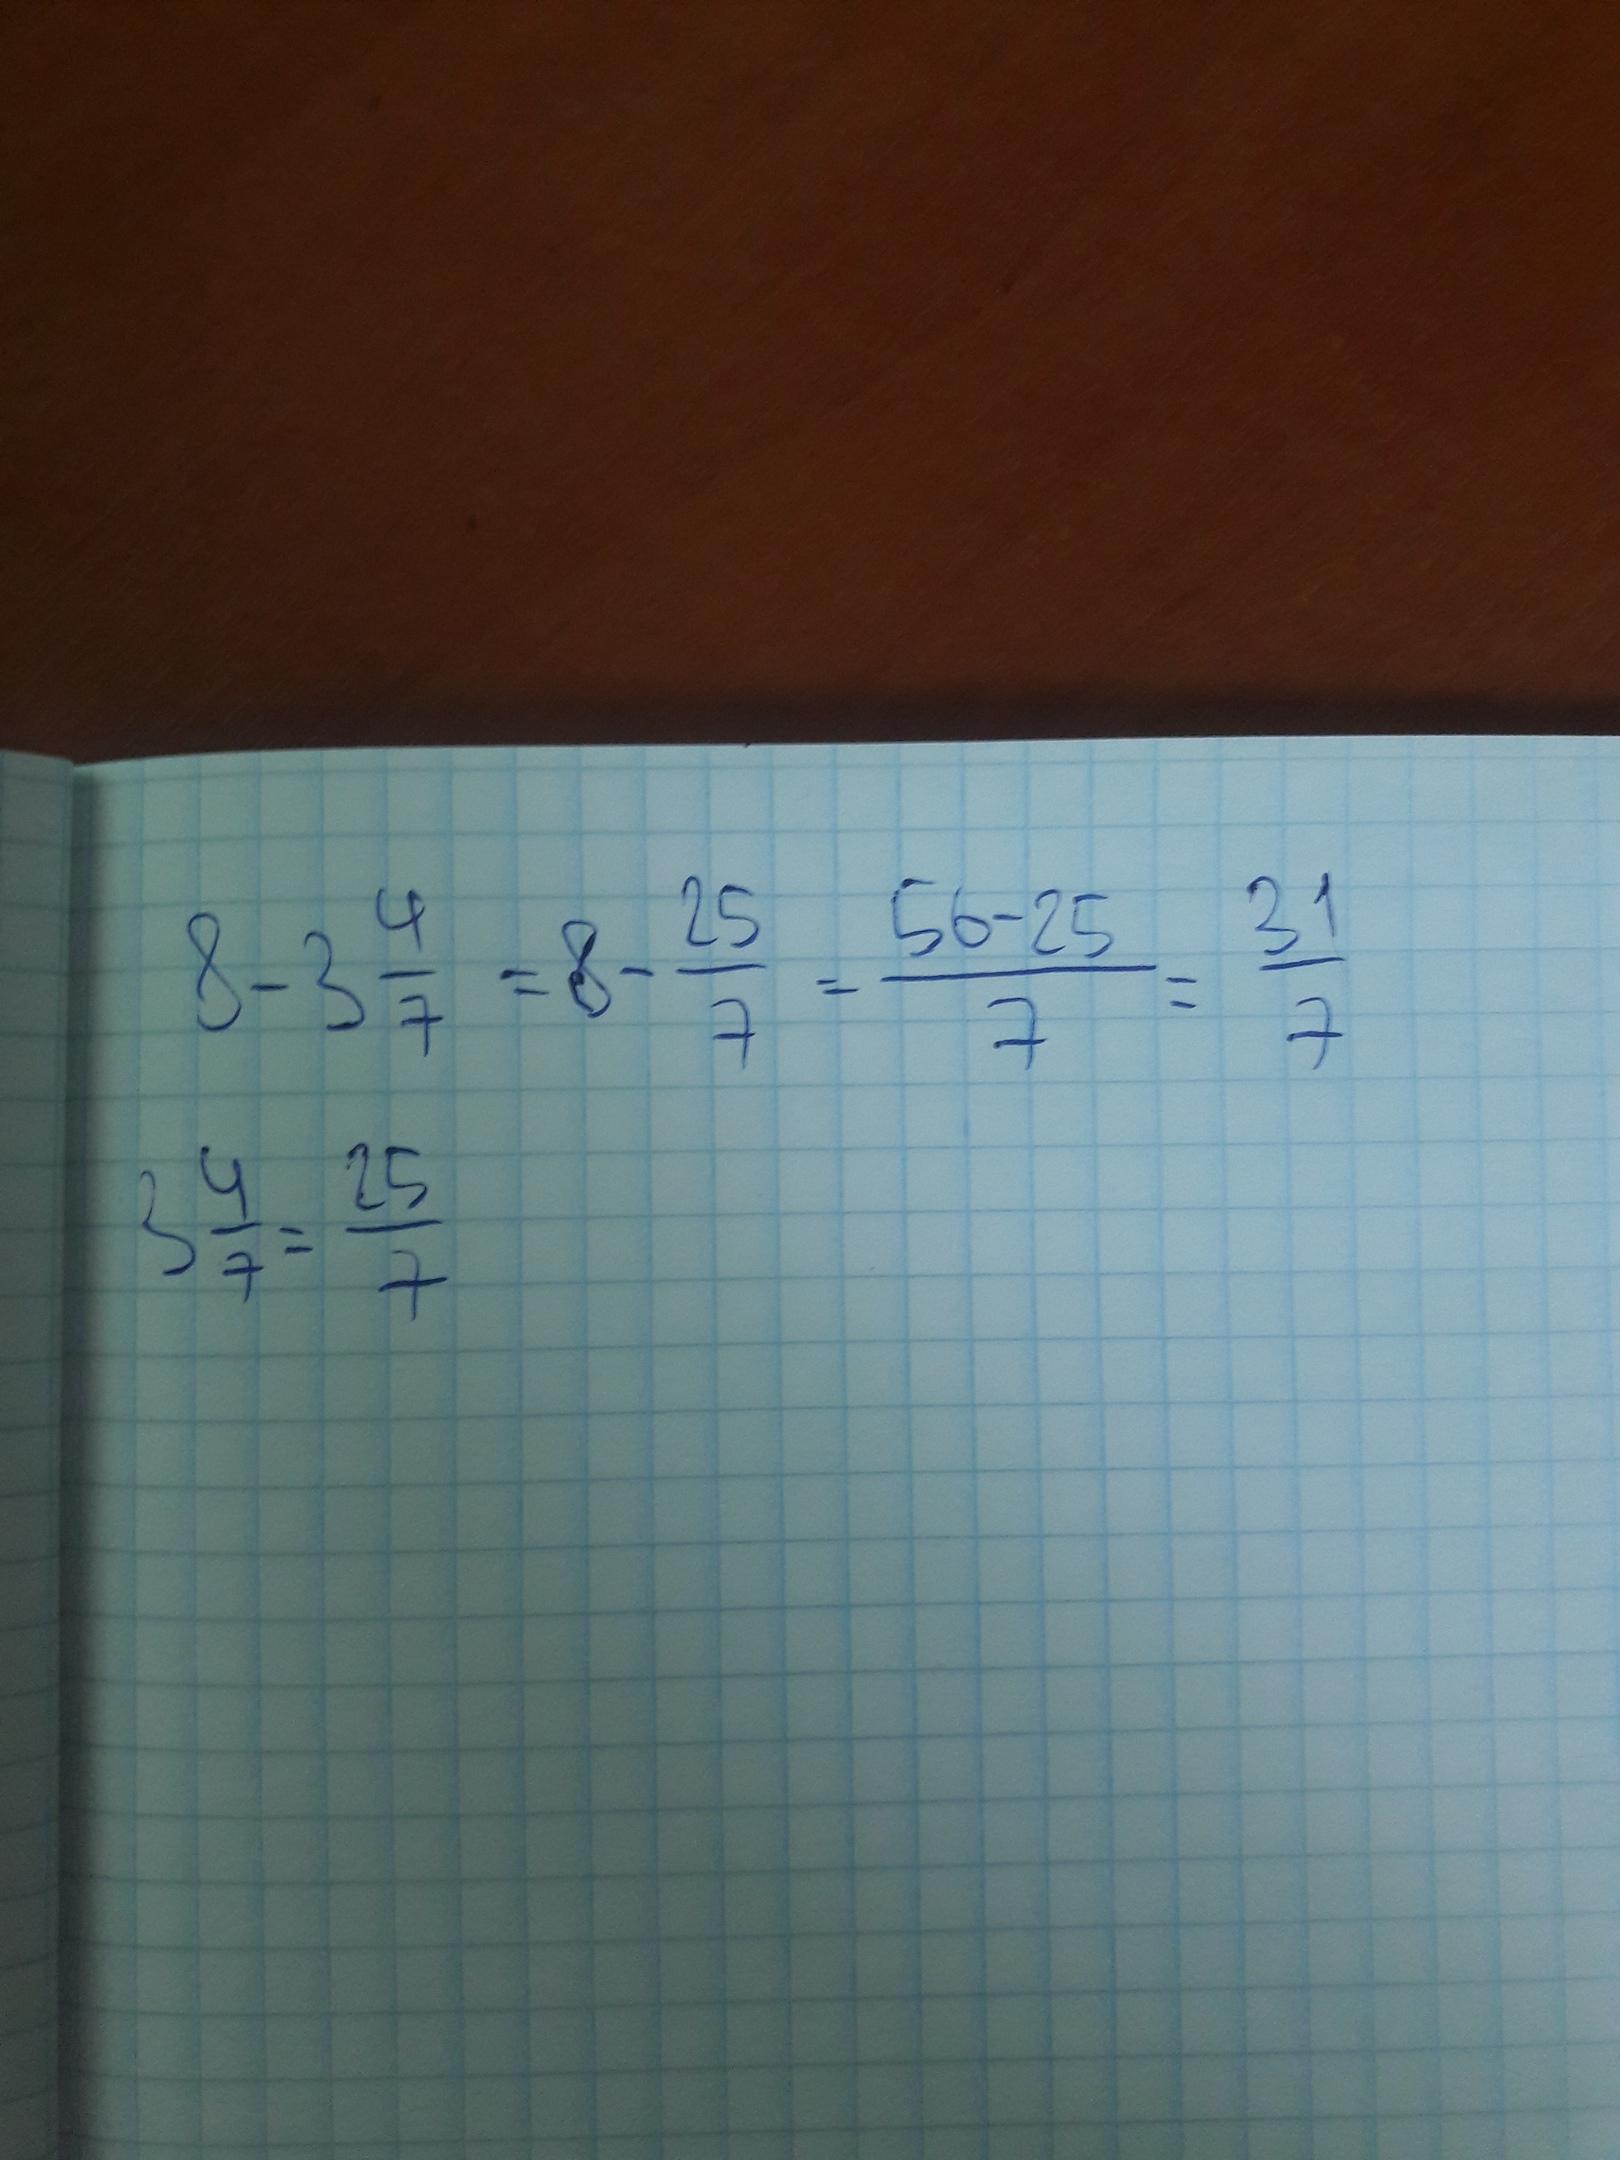 8 - 3 4/7 = 8 - 25/7 = 56-25/7 = 31/7
3 4/7 = 25/7